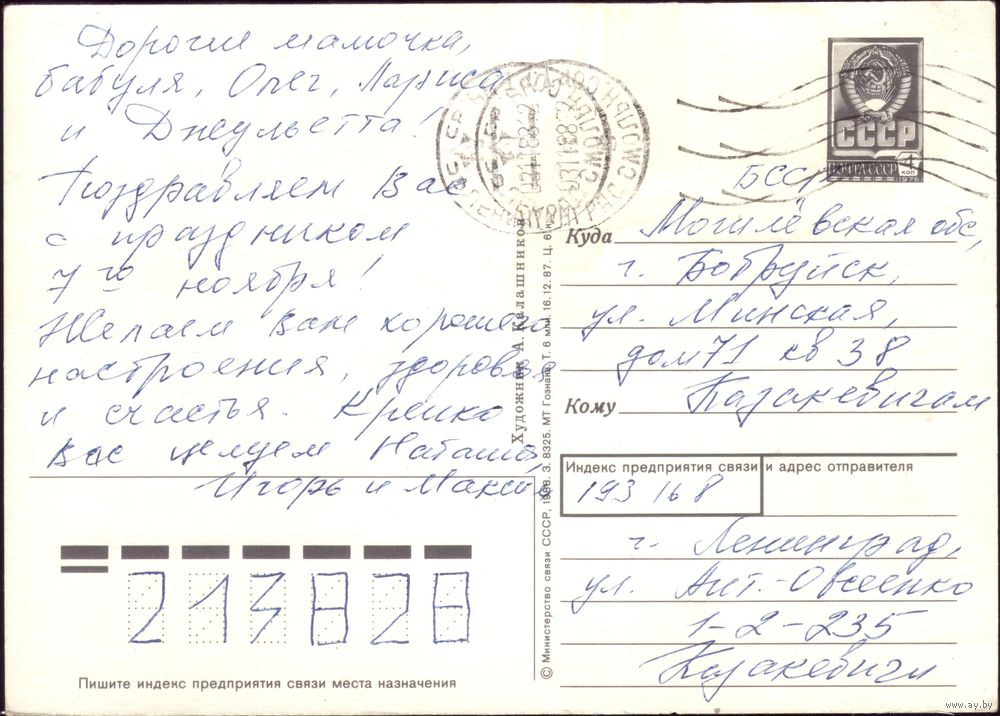 Дорогие мамочка,
бабуля, Олег, Лариса
и Джульетта!
Поздравляем Вас
с праздником
7го ноября!
Желаем Вам хорошего
настроения, здоровья
и счастья. Крепко
Вас целуем Наташа,
Игорь и Максим
СССР
ПОЧТА СССР
4 коп
1976
БССР
Куда Могилёвская обл,
г. Бобруйск,
ул. Минская,
дом 71 кв 38
Кому Казакевичам
Индекс предприятия связи и адрес отправителя
193168
г. Ленинград,
ул. Ант.-Овсеенко
1-2-235
Казакевичи
213828
Пишите индекс предприятия связи места назначения
Художник А. Калашников
© Министерство связи СССР, 1988. З. 8325. МТ Гознака. Т. 6 млн. 16.12.87. Ц. 6 к.
www.ay.by